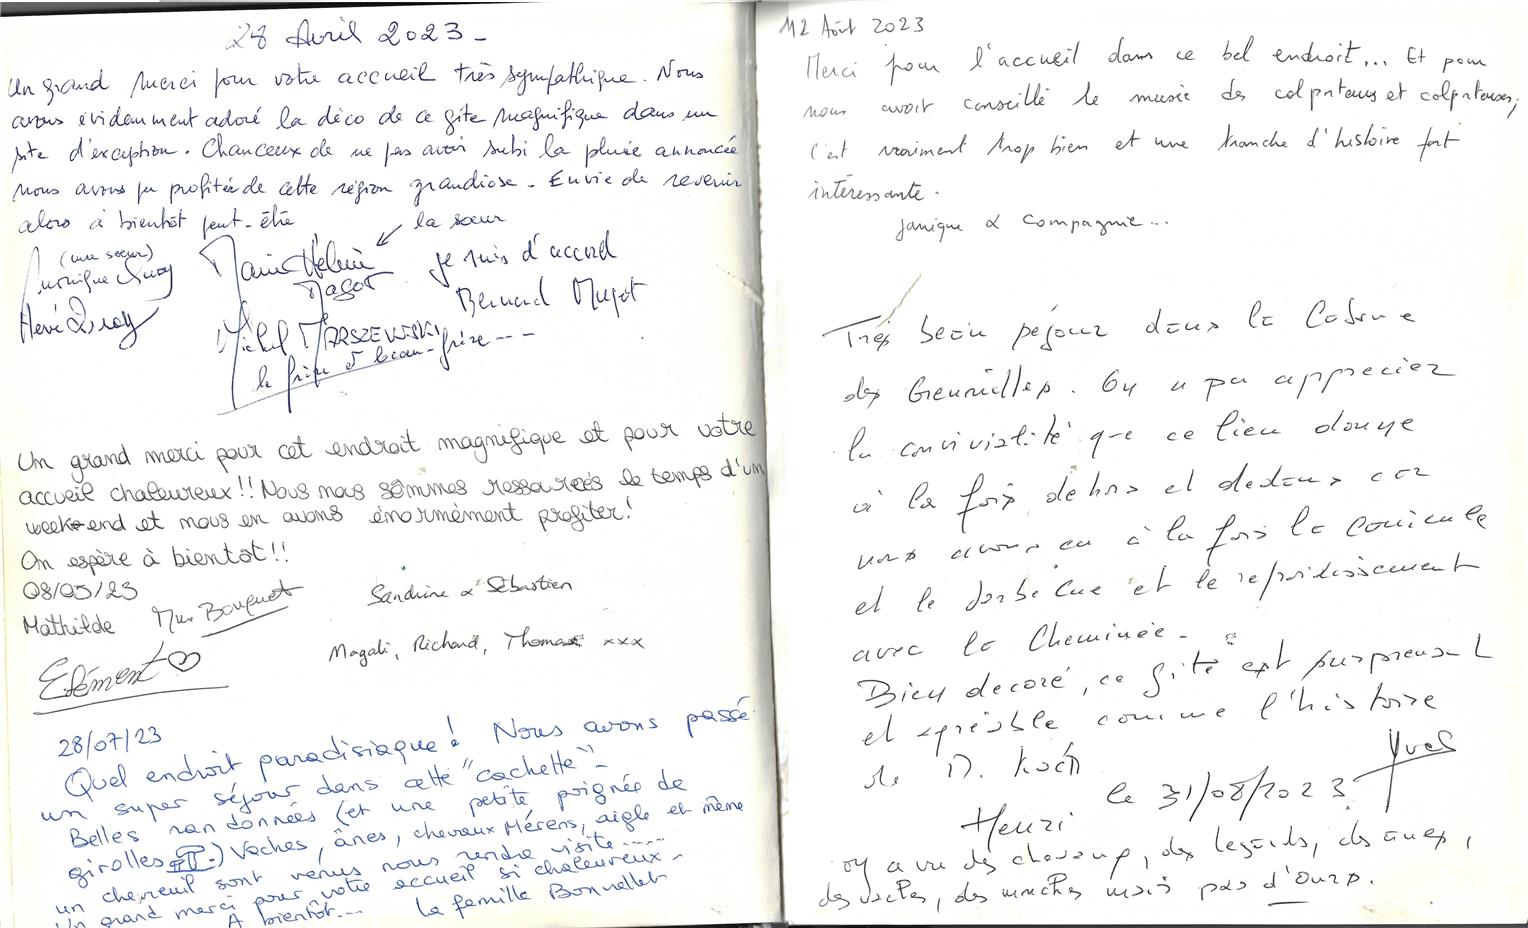 28 Avril 2023 -
Un grand merci pour votre accueil très sympathique. Nous
avons évidemment adoré la déco de ce gîte magnifique dans un
site d'exception. Chanceux de ne pas avoir subi la pluie annoncée
nous avons pu profiter de cette région grandiose - Envie de revenir
alors à bientôt peut-être
la sœur
(une sœur)
Monique
Hervé
Marie Hélène
Magot
je suis d'accord
Bernard Magot
Michel MARSZEWSKI
le frère & beau-frère ---
Un grand merci pour cet endroit magnifique et pour votre
accueil chaleureux!! Nous nous sommes ressourcés le temps d'un
week-end et nous en avons énormément profiter!
On espère à bientot!!
08/05/23
Mathilde
Mme Bouquet
Clément ♡
Sandrine & Sébastien
Magali, Richard, Thomas xxx
28/07/23
Quel endroit paradisiaque! Nous avons passé
un super séjour dans cette "cachette" -
Belles randonnées (et une petite poignée de
girolles) Vaches, ânes, chevaux Mérens, aigle et même
un chevreuil sont venus nous rendre visite.....
Un grand merci pour votre accueil si chaleureux -
A bientôt... la famille Bonnellet
12 Août 2023
Merci pour l'accueil dans ce bel endroit... Et pour
nous avoir conseillé le musée des colporteurs et colporteuses;
c'est vraiment trop bien et une tranche d'histoire fort
intéressante.
Janique & compagnie...
Très beau séjour dans la Cabane
des . On a pu apprecier
la convivialité que ce lieu donne
à la fois dehors et dedans car
nous avons eu à la fois la canicule
et le barbecue et le refroidissement
avec la cheminée -
Bien decoré, ce gîte est surprenant
et agréable comme l'histoire
de M. Koch
Yves
le 31/08/2023
Henri
on a vu des chevaux, des lezards, des anes,
des vaches, des mouches mais pas d'ours.